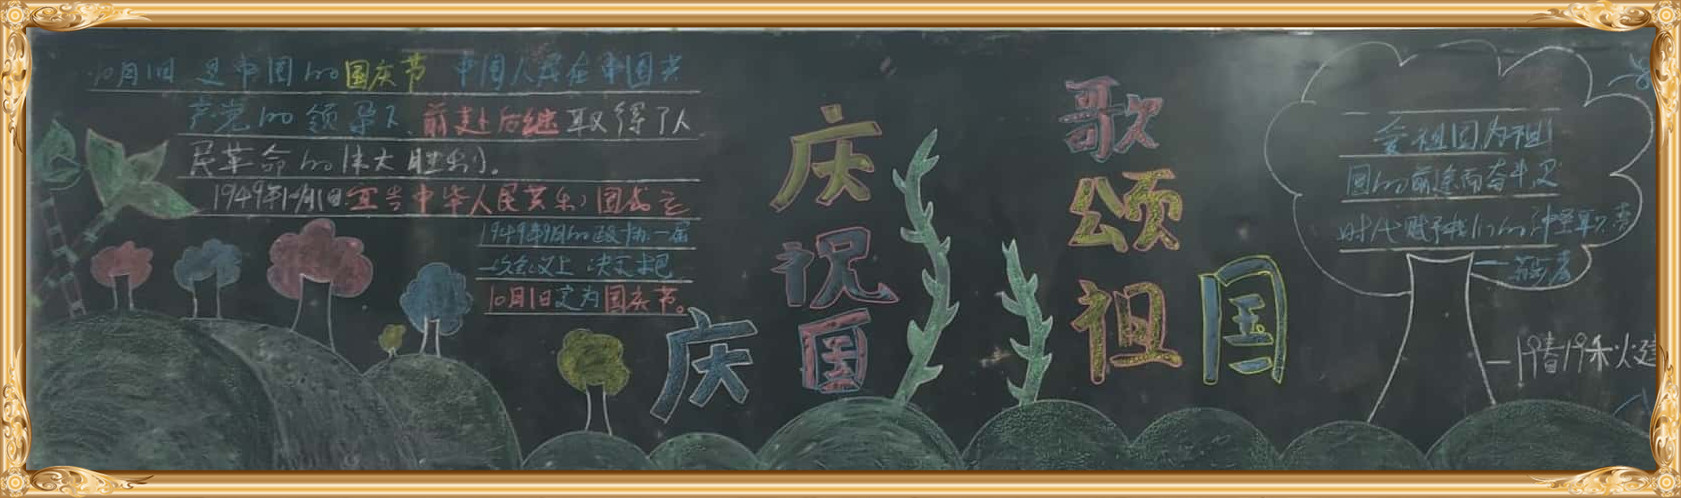 10月1日 是中国的国庆节 中国人民在中国共
产党的领导下,前赴后继取得了人
民革命的伟大胜利。
1949年10月1日宣告中华人民共和国成立
1949年9月的政协一届
一次会议上 决定把
10月1日定为国庆节。
庆祝国庆
歌颂祖国
爱祖国为祖
国的前途而奋斗是
时代赋予我们的神圣职责
一苏步青